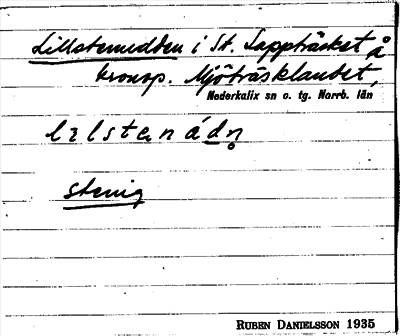 Lillstenudden i St. Lappträsket å
kronop. Mjöträsklandet,
Nederkalix sn o. tg. Norrb. län
stenig
RUBEN DANIELSSON 1935